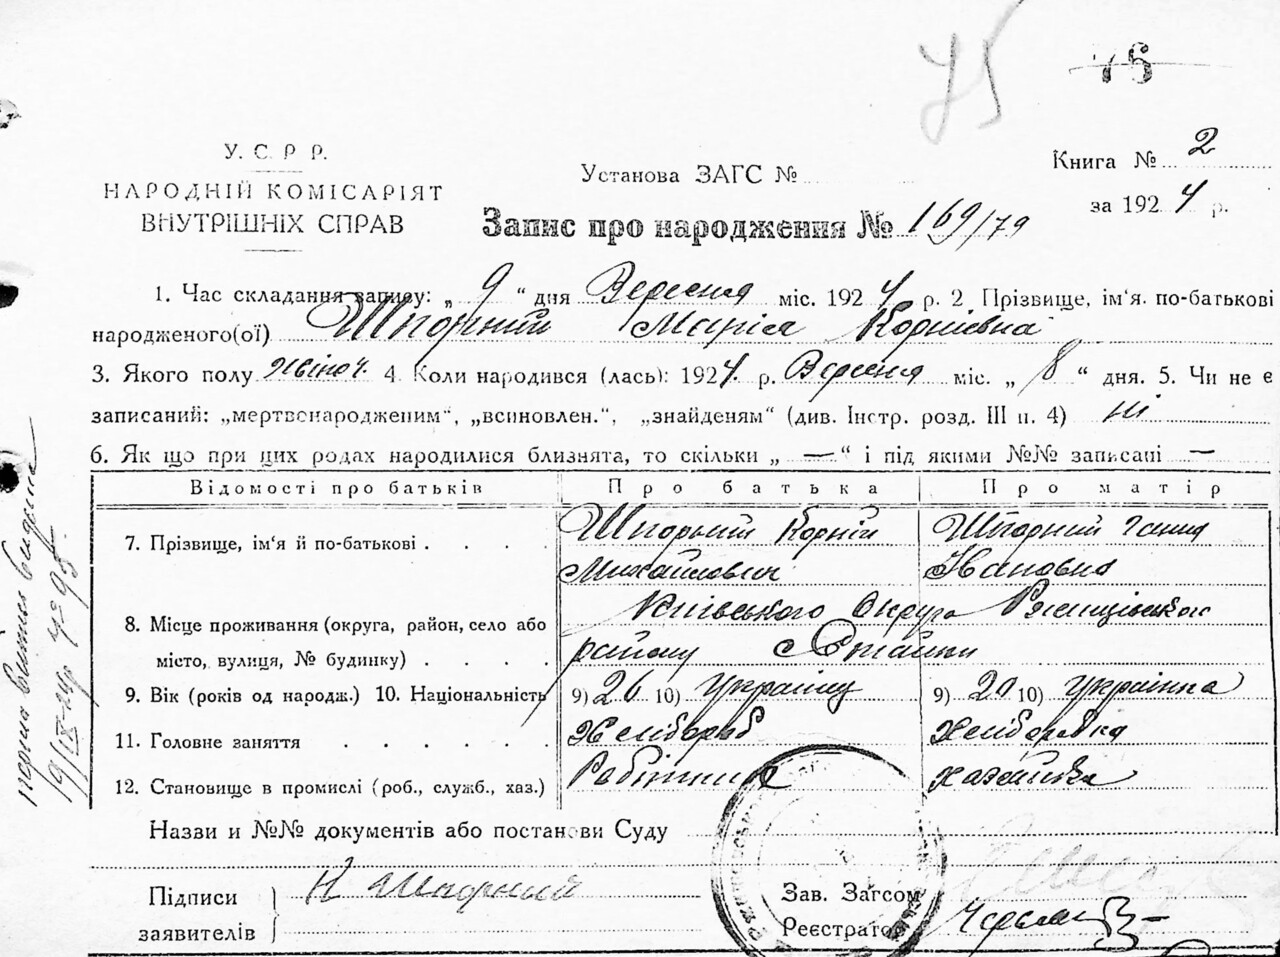 75
75
У. С. Р Р.
НАРОДНІЙ КОМІСАРІЯТ
ВНУТРІШНІХ СПРАВ
Установа ЗАГС №
Книга № 2
за 1924 р.
Запис про народження № 169/79
1. Час складання запису: „ 9 “ дня Вересня міс. 1924 р. 2 Прізвище, ім‘я. по-батькові
народженого(ої) Шпорний Марія Корніевна
3. Якого полу жіноч. 4. Коли народився (лась): 1924 р. Вересня міс. „ 8 “ дня. 5. Чи не є
записаний: „мертвенародженим“, „всиновлен.“, „знайденям“ (див. Інстр. розд. III п. 4) ні
6. Як що при цих родах народилися близнята, то скільки „ — “ і під якими №№ записані —
Відомості про батьків Про батька Про матір
7. Прізвище, ім‘я й по-батькові . . . . Шпорний Корній Михайлович Шпорний Ганна Івановна
8. Місце проживання (округа, район, село або Київського Округа Ржищівського
місто, вулиця, № будинку) . . . . району Стайки
9. Вік (років од народж.) 10. Національність 9) 26 10) Українець 9) 20 10) Українка
11. Головне заняття . . . . . . Хлібороб Хлиборобка
12. Становище в промислі (роб., служб., хаз.) Робітник хазяйка
Назви и №№ документів або постанови Суду
Підписи
заявителів
К Шпорний
Зав. Загсом
Реєстратор
19/IX-24 № 95